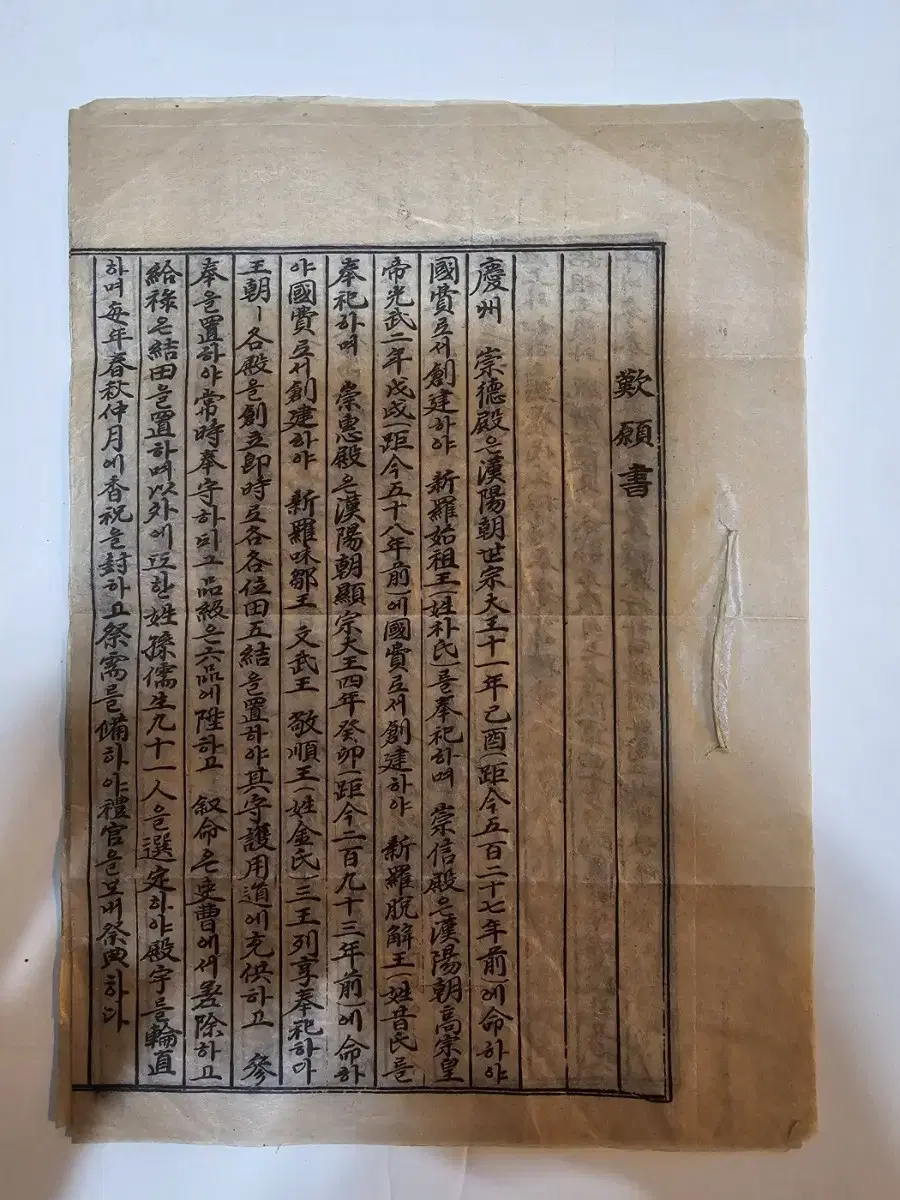 歎願書
慶州 崇德殿은漢陽朝世宗大王十一年己酉(距今五百二十七年前)에命하야
國費로서創建하야 新羅始祖王(姓朴氏)를奉祀하며 崇信殿은漢陽朝高宗皇
帝光武二年戊戌(距今五十八年前)에國費로서創建하야 新羅脫解王(姓昔氏를
奉祀하며 崇惠殿은漢陽朝顯宗大王四年癸卯(距今二百九十三年前)에命하
야國費로서創建하야 新羅味鄒王 文武王 敬順王(姓金氏)三王列享奉祀하마
王朝ㅣ各殿을創立即時로各各位田五結을置하야其守護用道에充供하고 參
奉을置하야常時奉守하되그品級은六品에陞하고 叙命은吏曹에서差除하고
給祿은結田을置하며以外에또한姓孫儒生九十一人을選定하야殿宇를輪直
하며每年春秋仲月에香祝을封하고祭需를備하야禮官을보내祭典하다